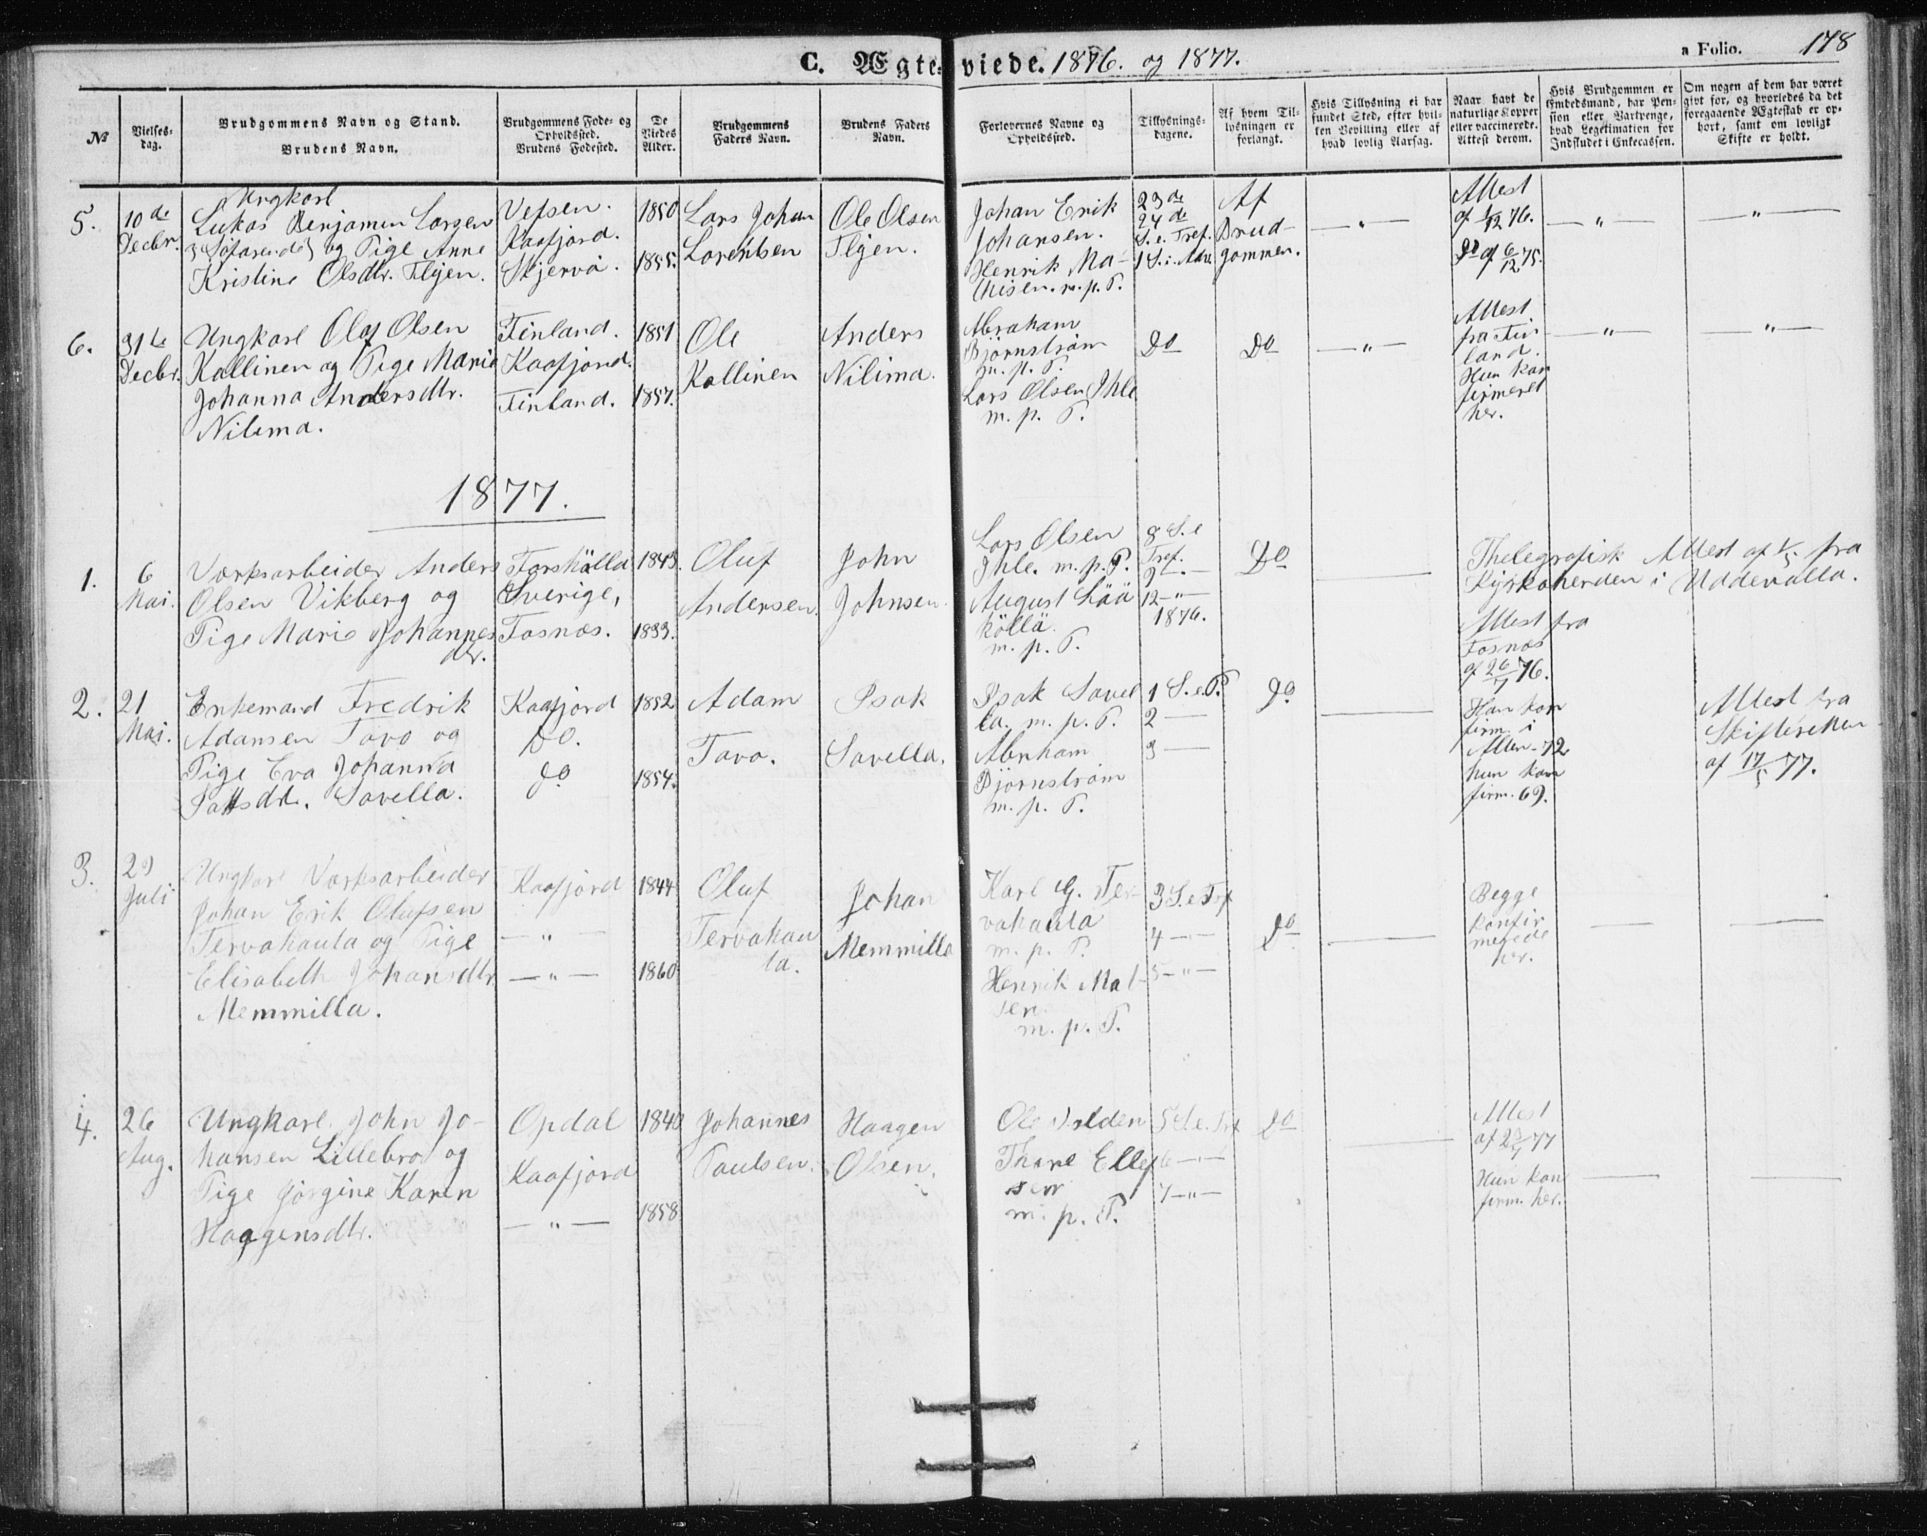 C. Ægteviede. 1876. og 1877.
a Folio. 178
No
Vielses-
dag.
Brudgommens Navn og Stand.
Brudens Navn.
Brudgommens Føde- og
Opholdssted.
Brudens Fødested.
De
Viedes
Alder.
Brudgommens
Faders Navn.
Brudens Faders
Navn.
Forlovernes Navne og
Opholdssted.
Tillysnings-
dagene.
Af hvem Til-
lysningen er
forlangt.
Hvis Tillysning ei har
fundet Sted, efter hvil-
ken Bevilling eller af
hvad lovlig Aarsag.
Naar havt de
naturlige Kopper
eller vaccinerede.
Attest derom.
Hvis Brudgommen er
Embedsmand, har Pen-
sion eller Vartpenge,
hvad Legitimation for
Indskudet i Enkecassen.
Om nogen af dem har været
givt for, og hvorledes da det
foregaaende Ægteskab er op-
hørt, samt om lovligt
Skifte er holdt.
5.
10 de
Decbr.
Ungkarl
Lukas Benjamin Larsen
(Søfarende) og Pige Anne
Kristine Olsdtr. Flyen.
Vefsen.
Kaafjord.
Skjervö.
1850
1855.
Lars Johan
Lorentsen
Ole Olsen
Flyen.
Johan Erik
Johansen.
Henrik Ma-
thisen. m. p. P.
23 de
24 de
S. e. Tref.
1 S. i Adv.
Af
Brud-
gommen.
— " —
Attest
af 1/12 76.
Do af 6/12 75.
— " —
— " —
6.
31te
Decbr.
Ungkarl Olaf Olsen
Kallinen og Pige Maria
Johanna Andersdtr.
Nilima.
Finland.
Kaafjord.
Finland.
1851
1857.
Ole
Kallinen
Anders
Nilima.
Abraham
Björnström
m. p. P.
Lars Olsen Ihle
m. p. P.
Do
Do
— " —
Attest
fra Fin
land.
Hun kon
firmeret
her.
— " —
— " —
1877.
1.
6
Mai.
Værksarbeider Anders
Olsen Vikberg og
Pige Marie Johannes
dtr.
Forshälla
Sverige,
Fosnæs.
1843.
1833.
Oluf
Andersen.
John
Johnsen.
Lars Olsen
Ihle. m. p. P.
August Lää
kölla.
m. p. P.
8 S. e
Tref.
9 — " —
12 — " —
1876.
Do
Thelegrafisk Attest af 1/5. fra
Kyrkoherden i Uddevalla.
Attest fra
Fosnæs
af 26/7 76.
2.
21
Mai.
Enkemand Fredrik
Adamsen Tavo og
Pige Eva Johanna
Savella.
Kaafjord
Do.
do
1852
1854.
Adam
Tavo.
Isak
Savella.
Isak Savel
la. m. p. P.
Abraham
Björnström
m. p. P.
1 S. e. P.
2 —
3 —
Do
Han kon
firm. i
Alten - 72
hun kon
firm. 69.
Attest fra
Skifteretten
af 17/5 77.
3.
29
Juli
Ungkarl Værksarbeider
Johan Erik Olufsen
Tervahauta og Pige
Elisabeth Johansdtr.
Memmilla.
Kaafjord
— " —
— " —
1844
1860
Oluf
Tervahau
ta.
Johan
Memmilla
Karl G. Ter-
vahauta
m. p. P.
Henrik Mat-
sen.
m. p. P.
3 S. e Tref
4 — " —
5 — " —
Do
Begge
konfir
merede
her.
4.
26
Aug.
Ungkarl. John Jo-
hansen Lillebro og
Pige Jørgine Karen
Haagensdtr.
Opdal
Kaafjord
— " —
1840
1858
Johannes
Paulsen.
Haagen
Olsen.
Ole
Thore Ellef
sen
m. p. P.
5 S. e. Tref
6 — " —
7 — " —
Do
Attest
Hun kon
firm. her.